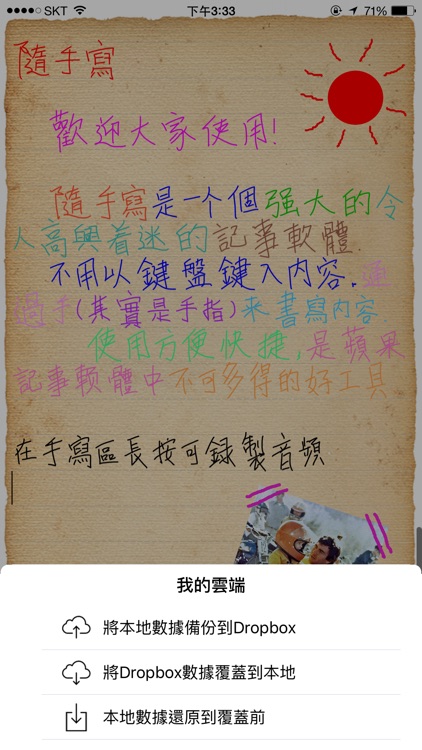 SKT 下午3:33 71%
隨手寫
歡迎大家使用!
隨手寫是一个個强大的令
人高興着迷的記事軟體.
不用以鍵盤鍵入内容.通
過手(其實是手指)来書寫内容
使用方便快捷,是蘋果
記事軟體中不可多得的好工具
在手寫區長按可録製音頻
我的雲端
將本地數據備份到Dropbox
將Dropbox數據覆蓋到本地
本地數據還原到覆蓋前